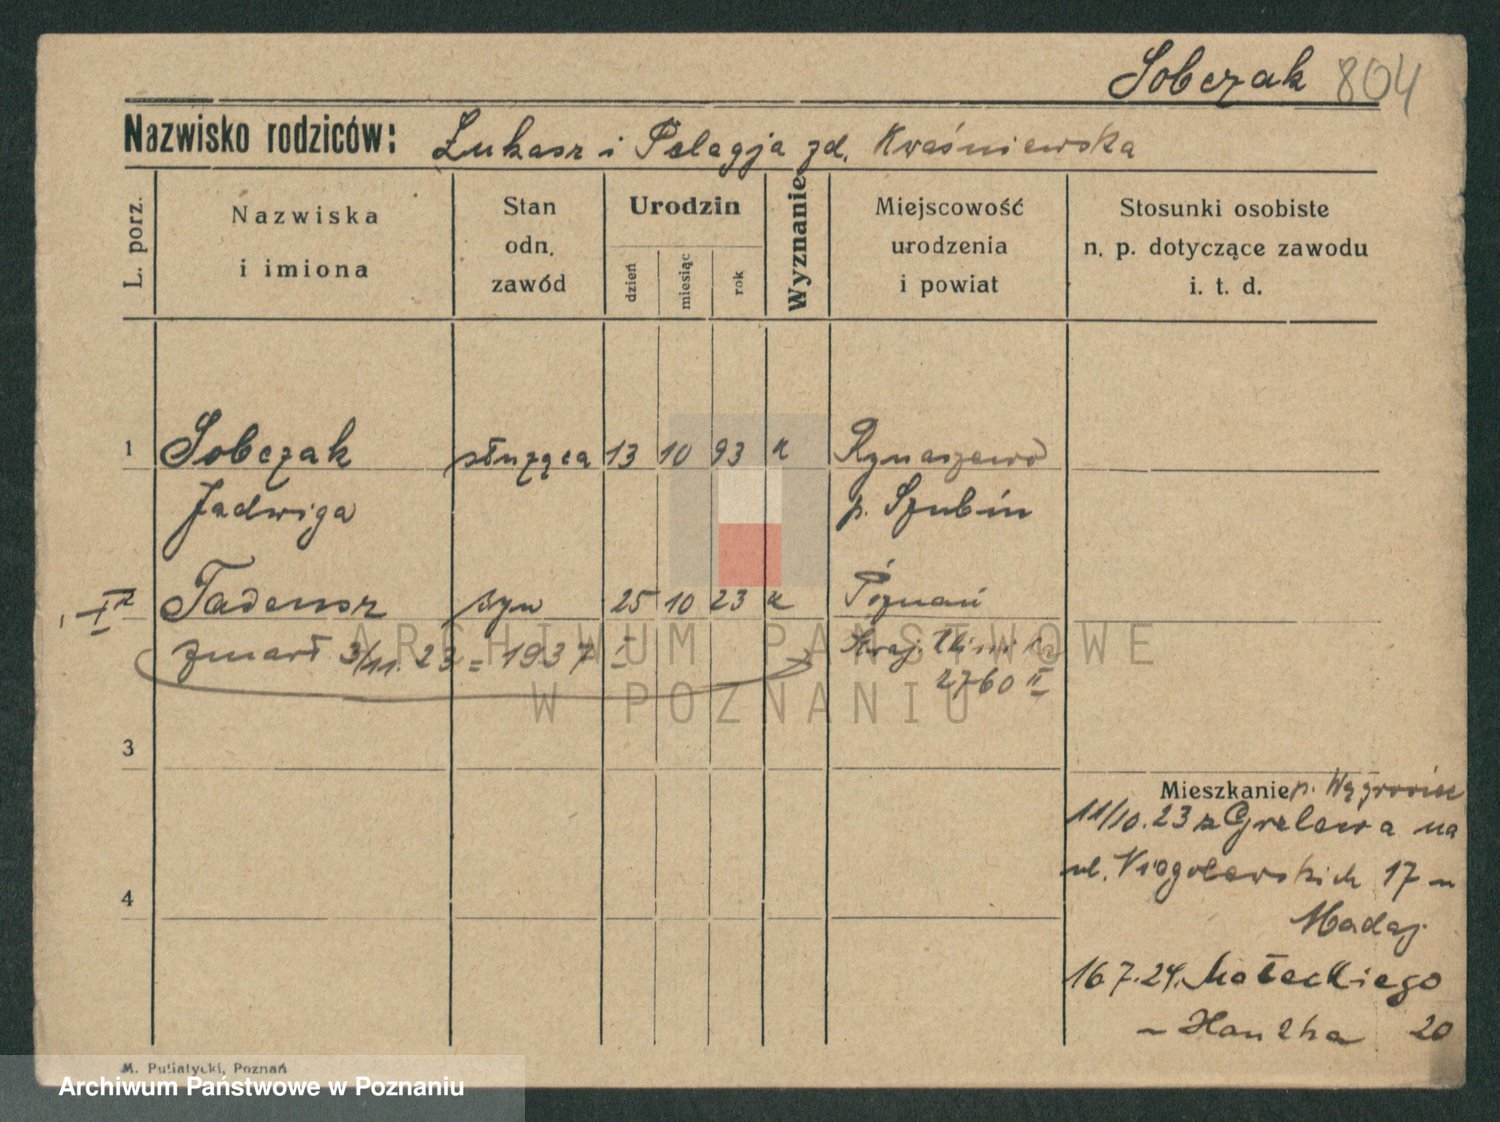 Sobczak 804
Nazwisko rodziców: Łukasz i Pelagja zd. Kwaśniewska
L. porz.
Nazwiska
i imiona
Stan
odn.
zawód
Urodzin
dzień
miesiąc
rok
Wyznanie
Miejscowość
urodzenia
i powiat
Stosunki osobiste
n. p. dotyczące zawodu
i. t. d.
1 Sobczak służąca 13 10 93 k Rynaszewo
Jadwiga p. Szubin
Tadeusz syn 25 10 23 k Poznań
zmarł 3/11.23 = 1937 I Kraj. Klinika
2760 II
3
Mieszkanie p. Wągrowiec
11/10.23 z Grelewa na
ul. 17
Madaj
4
16.7.24. Małeckiego
Hanska 20
M. Puliatycki, Poznań
ARCHIWUM PAŃSTWOWE
W POZNANIU
Archiwum Państwowe w Poznaniu